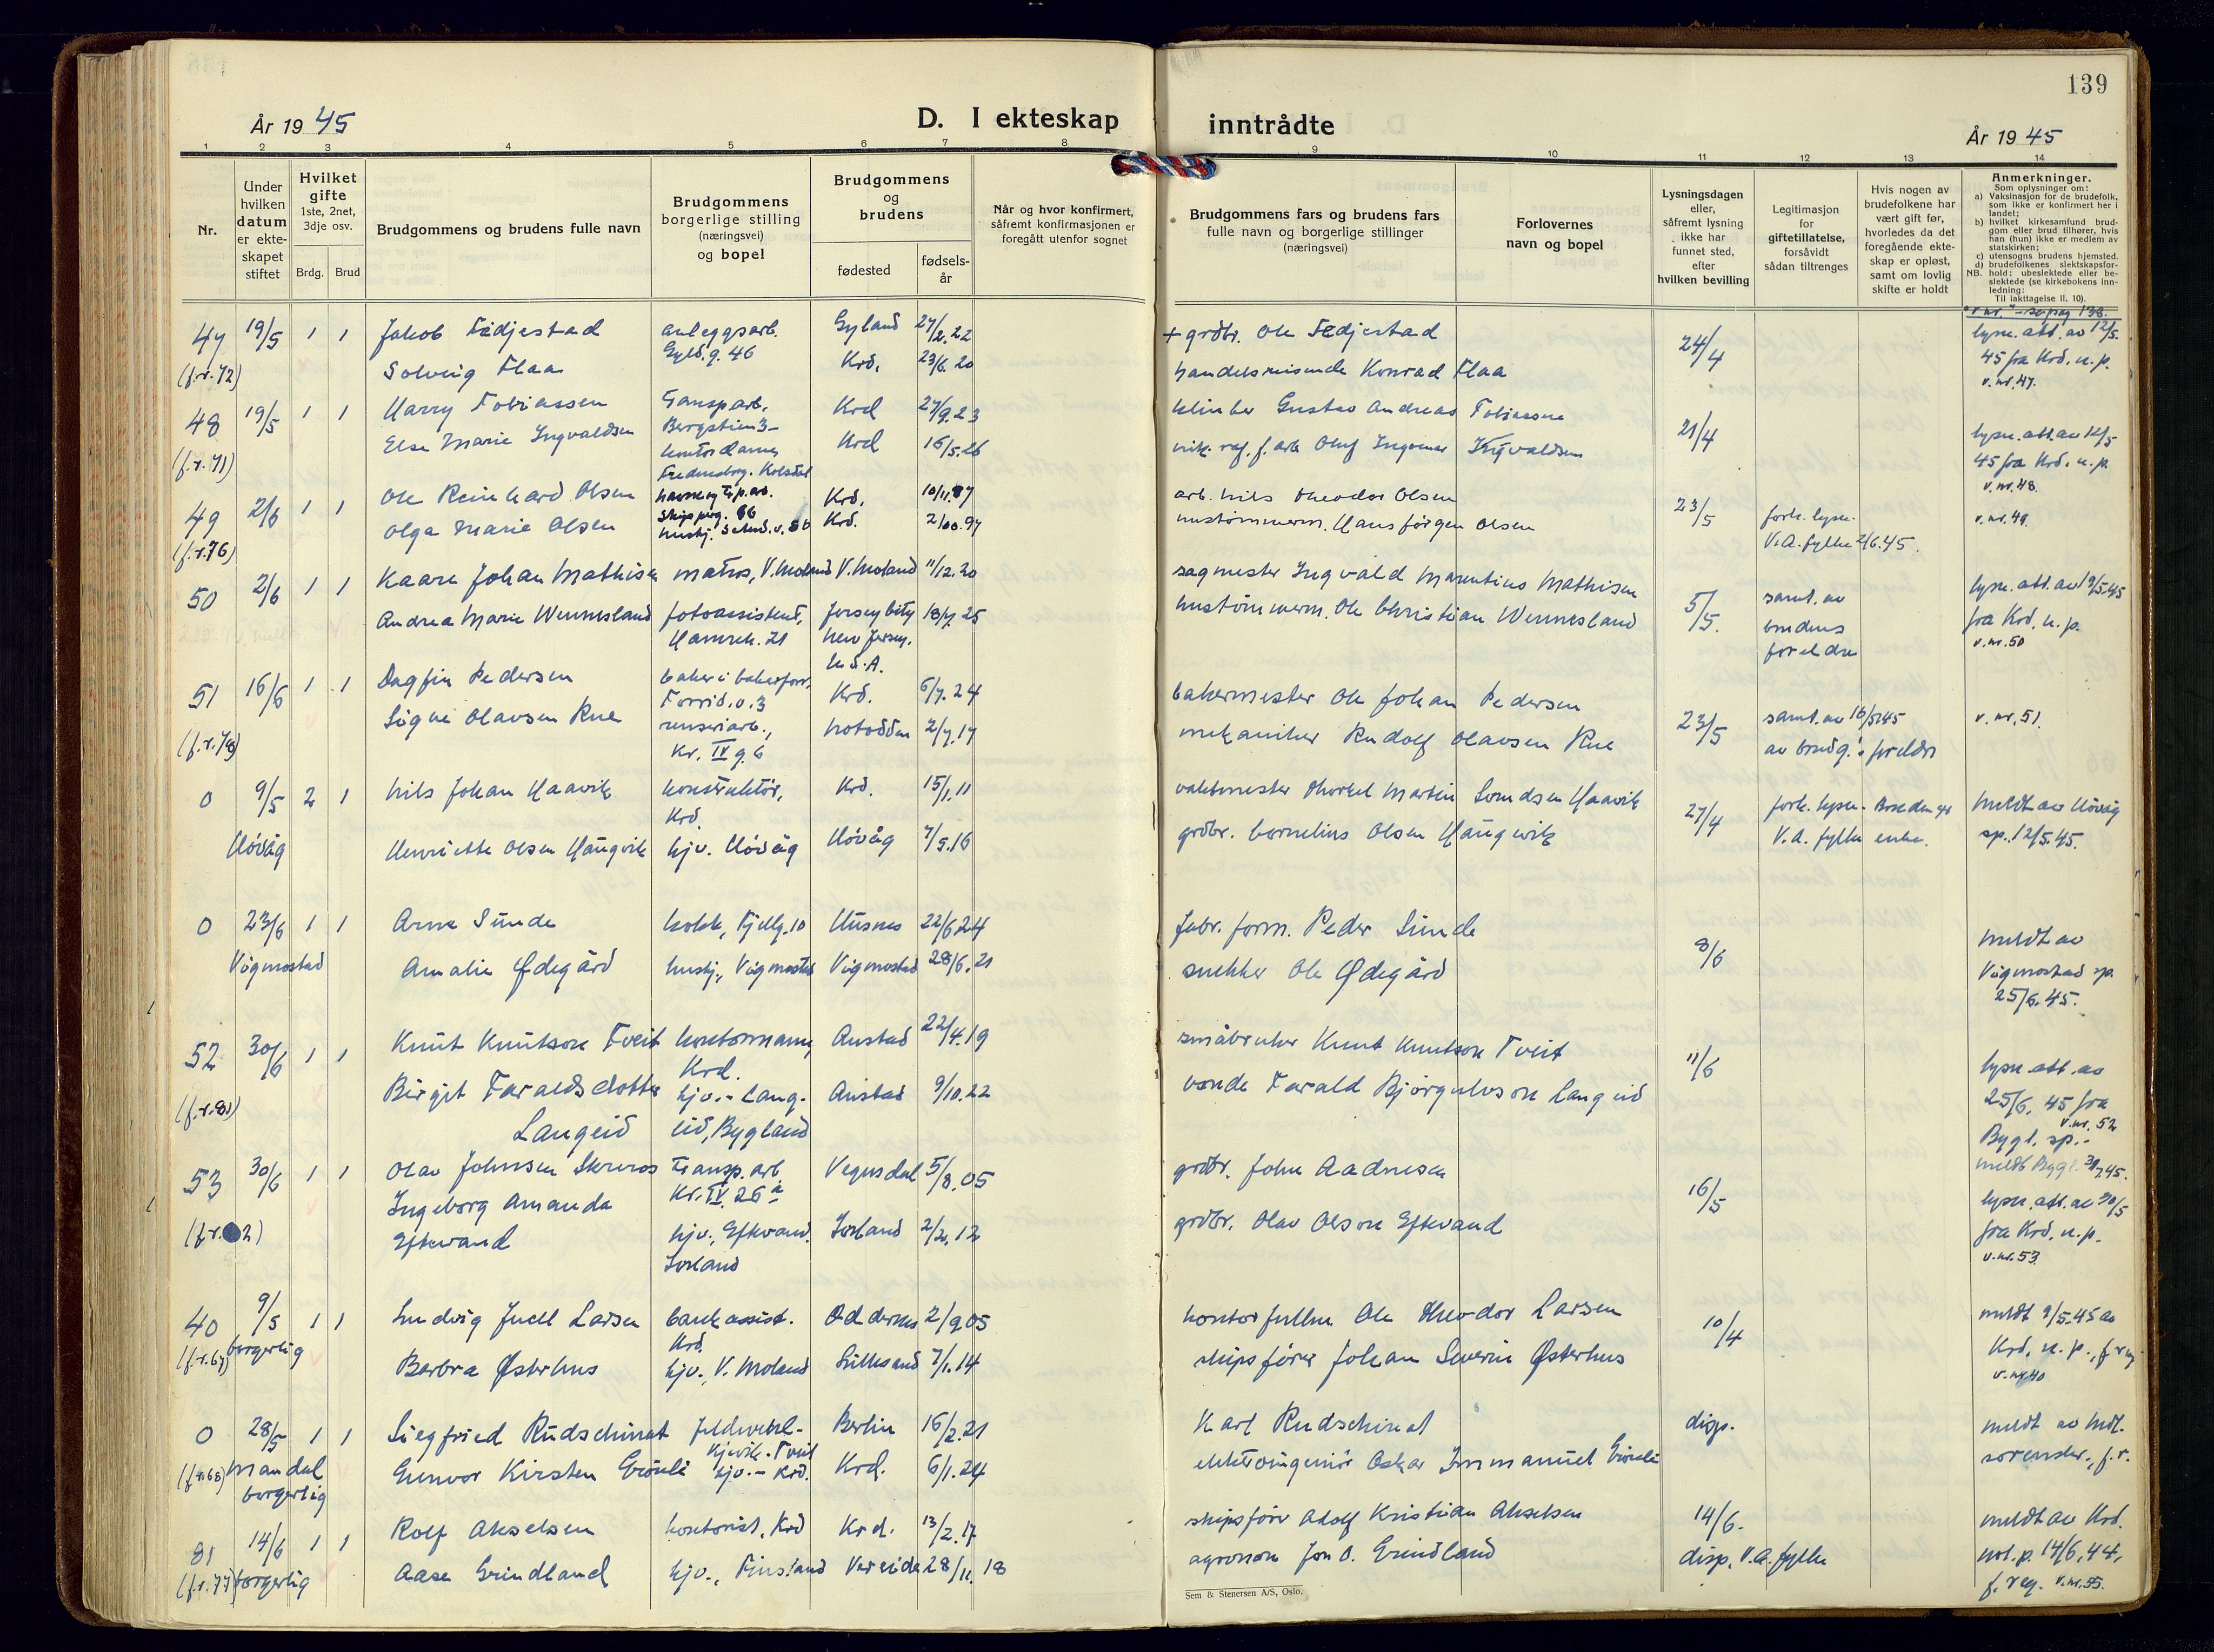 139
År 1945
D. I ekteskap
inntrådte
År 1945
1 2 3 4 5 6 7 8 9 10 11 12 13 14
Nr.
Under hvilken datum er ekteskapet stiftet
Hvilket gifte 1ste, 2net, 3dje osv.
Brdg. Brud
Brudgommens og brudens fulle navn
Brudgommens borgerlige stilling (næringsvei) og bopel
Brudgommens og brudens
fødested
fødselsår
Når og hvor konfirmert, såfremt konfirmasjonen er foregått utenfor sognet
Brudgommens fars og brudens fars fulle navn og borgerlige stillinger (næringsvei)
Forlovernes navn og bopel
Lysningsdagen eller, såfremt lysning ikke har funnet sted, efter hvilken bevilling
Legitimasjon for giftetillatelse, forsåvidt sådan tiltrenges
Hvis nogen av brudefolkene har vært gift før, hvorledes da det foregående ekteskap er opløst, samt om lovlig skifte er holdt
Anmerkninger.
Som oplysninger om:
a) Vaksinasjon for de brudefolk, som ikke er konfirmert her i landet;
b) hvilket kirkesamfund brudgom eller brud tilhører, hvis han (hun) ikke er medlem av statskirken;
c) utensogns brudens hjemsted.
d) brudefolkenes slektskapsforhold: ubeslektede eller beslektede (se kirkebokens innledning:
NB.
Til iakttagelse II. 10).
47 19/5 1 1 Jakob Fedjestad anleggsarb. Gyland 27/2.22 + grdbr. Ole Fedjestad 24/4 lysn.att. av 12/5.
Gyld.g. 46
(f.r.72) Solveig Flaa Krd. 23/6.20 handelsreisende Konrad Flaa 45 fra Krd. u.p.
v.nr.47.
48 19/5 1 1 Harry Tobiassen Transp.arb. Krd 27/9.23 Gustav Andreas Tobiassen 21/4 lysn.att.av 12/5
(f.r.71) Else Marie Ingvaldsen kontordame, Krd 16/5.26 Oluf Ingemar Ingvaldsen 45 fra Krd. u.p.
v.nr.48.
49 2/6 1 1 Ole Reinhard Olsen Krd. 10/11.87 arb. Nils Theodor Olsen 23/5 fork. lysn. v.nr.49.
(f.r.76) Olga Marie Olsen Krd. hustømmerm. Hans Jørgen Olsen V.A. fylke 2/6.45.
50 2/6 1 1 Kaare Johan Mathisen matros, V.Moland V.Moland 11/12.20 sagmester Ingvald Marentius Mathisen 5/5. samt. av lysn.att.av 19/5.45
Andrea Marie Wennesland fotoassistent, Jersey City 18/7.25 hustømmerm. Ole Christian Wennesland brudens fra Krd. u.p.
Hamrek. 21 New Jersey. foreldre v.nr.50
U.S.A.
51 16/6 1 1 Dagfin Pedersen Krd. 6/7.24 bakermester Ole Johan Pedersen 23/5 samt. av 16/5.45 v.nr.51.
(f.r.78) Signe Olavsen Rue renseriarb., Notodden 2/7.17 mekaniker Rudolf Olavsen Rue av brudg.'s foreldre
Kr. IV g. 6
0 9/5 2 1 Nils Johan Haavik konstruktør, Krd. 15/1.11 vaktmester Thorkel Martin Haavik 27/4 fork. lysn. meldt av Høvåg
Krd.
Høvåg Henriette Olsen Haugvik hjv. Høvåg Høvåg 7/5.16 grdbr. Cornelius Olsen Haugvik V.A. fylke sp. 12/5.45.
0 23/6 1 1 Arne Sunde kokk, Fjellg.10 Husnes 22/6.24 fabr. form. Peder Sunde 8/6 meldt av
Vigmostad Amalie Ødegård hushj., Vigmostad Vigmostad 28/6.21 snekker Ole Ødegård Vigmostad sp.
25/6.45.
52 30/6 1 1 Knut Knutson Tveit kontormann, Austad 22/4.19 småbruker Knut Knutson Tveit 11/6 lysn.att.av
Krd.
(f.r.80) Birgit Taraldsdotter hjv.- Lang- Austad 9/10.22 bonde Tarald Bjørgulvson Langeid 25/6.45 fra
Langeid eid, Bygland v.nr. 52
Bygl. sp.-
53 30/6 1 1 Olav Johnsen Skreros Transp.arb. Vegusdal 5/8.05 grdbr. John Aadnesen 16/5 meldt Bygl.
Kr.IV. 26a
Ingeborg Amanda lysn.att.av 30/5
Eftevand hjv., Eftevand. Iveland 2/2.12 grdbr. Olav Olson Eftevand fra Krd. u.p.
Iveland v.nr.53.
40 9/5 1 1 Ludvig Juell Larsen bankassist. Oddernes 2/9.05 kontorfullm. Ole Theodor Larsen 10/4 meldt 9/5.45 av
Krd.
(f.r.67) borgerlig Barbra Østerhus hjv., V. Moland Lillesand 7/1.14 skipsfører Johan Severin Østerhus Krd. u.p., f.reg
v.nr.40
0 28/5 1 1 Siegfried Rudschinat Berlin 16/2.21 Karl Rudschinat disp. meldt av
Kjevik-Tveit
(f.r.68) Mandal Gunvor Kirsten hjv.- Krd. Krd. 6/1.24 elektroingeniør Oskar Immanuel sorenskr., f.r.
borgerlig
81 14/6 1 1 Rolf Akselsen kontorist, Krd Krd. 13/2.17 skipsfører Adolf Kristian Akselsen 14/6. meldt av Krd.
(f.r.77) borgerlig Aase Grindland hjv., Finsland Vereide 28/11.18 agronom Jon O. Grindland disp. V.A. fylke not.p. 14/6.44,
f. reg. v.nr.55.
Sem & Stenersen A/S, Oslo.